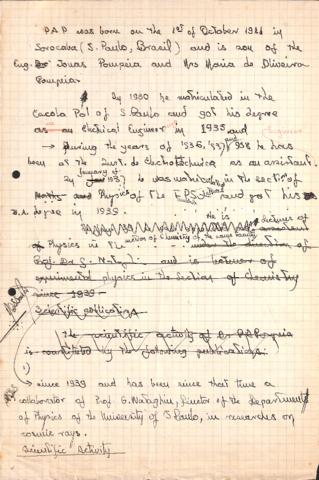 PAP was born on the 1st of October 1911 in
Sorocaba (S. Paulo, Brasil) and is son of the
Eng. Jonas Pompeia and Mrs Maria de Oliveira
Pompeia.
By 1930 he matriculated in the
Escola Pol of S Paulo and got his degree
as an Electrical Engineer in 1935 and
during the years of 1936, 1937 and 938 he has
been at the Inst. de Electrotechnica as an assistant.
By 1937 he was in the section of
Maths and Physics of the and got his
degree by 1939.
He is lecturer of
Physics in the section of Chemistry of the same faculty under the direction of
Prof. Dr G. Wataghin and is lecturer of
experimental physics in the section of chemistry
since 1939
Scientific publications
The scientific activity of Dr PAPompeia
is constituted by the following publications:
since 1939 and has been since that time a
collaborator of Prof G. Wataghin, Director of the department
of Physics of the University of S Paulo, in researches on
cosmic rays.
Scientific Activity